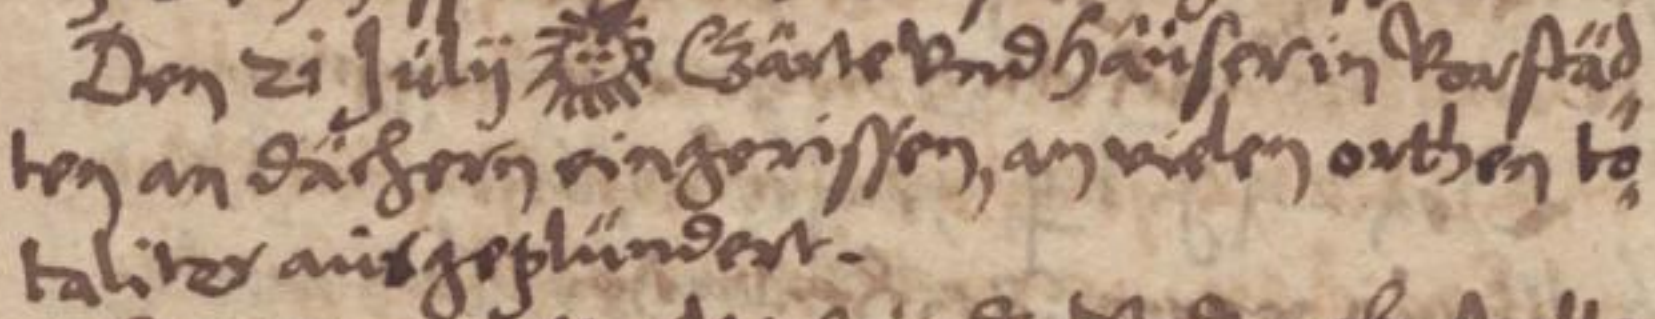 Den 21 Julij ☉ Gärte vnd Häuser in Vorstäd⸗
ten an dächern eingerissen, an vielen orthen to⸗
taliter ausgeplündert.